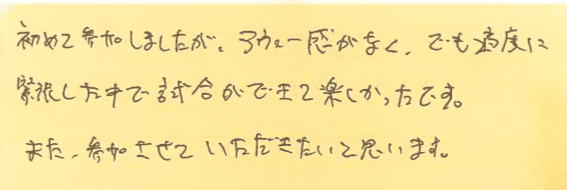 初めて参加しましたが、アウェー感がなく、でも適度に
緊張した中で試合ができて楽しかったです。
また、参加させていただきたいと思います。